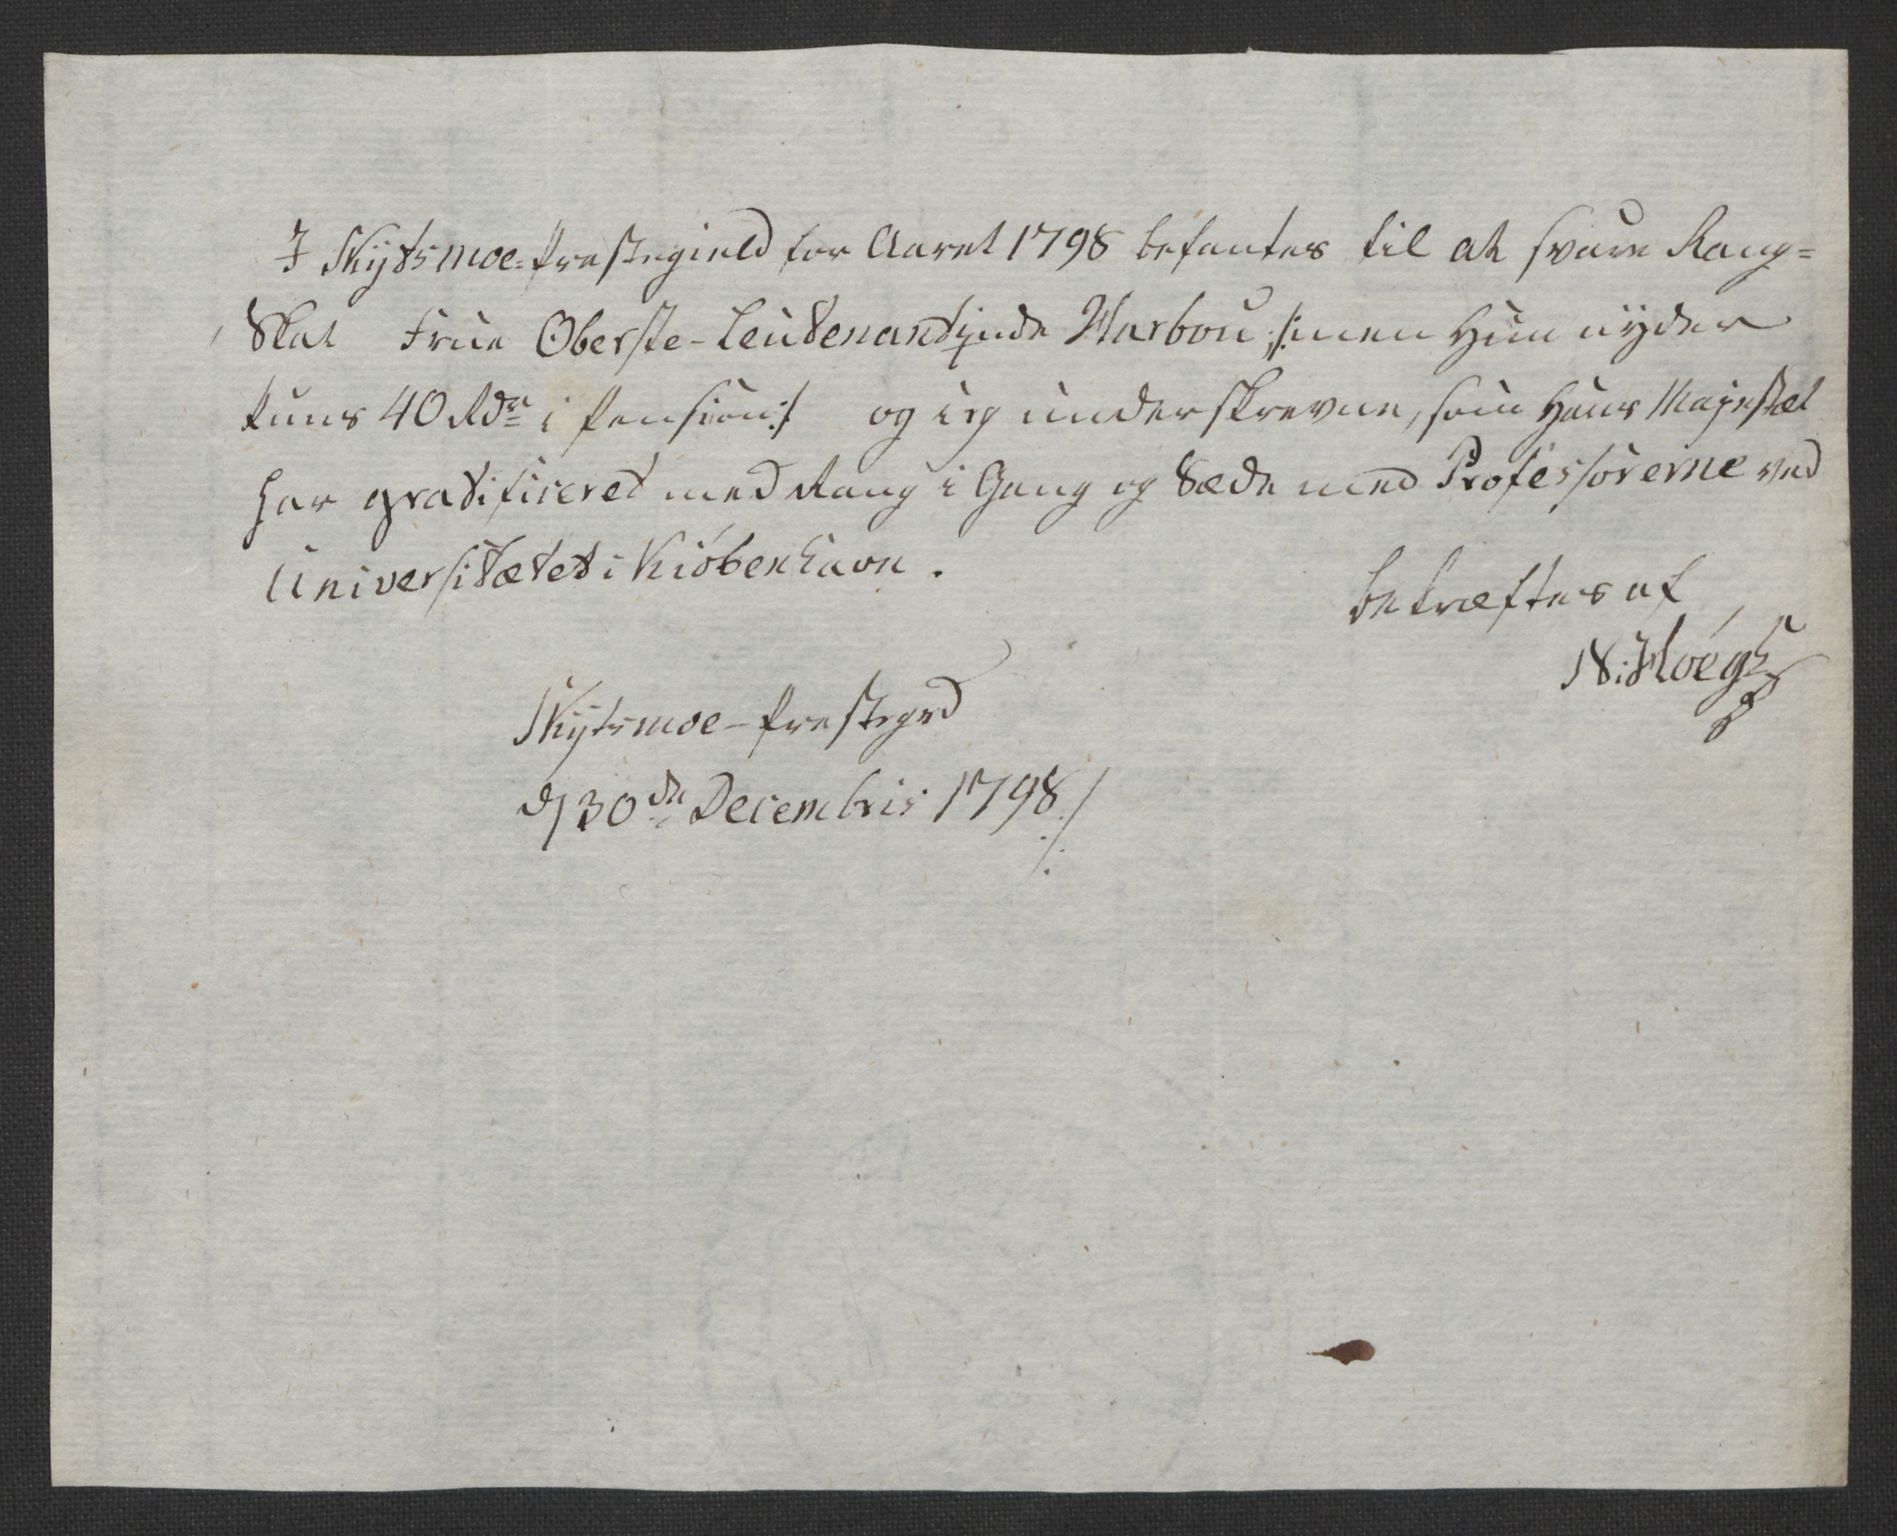 I Skÿtsmoe-Præstegield for Aaret 1798 befantes til at svare Rang=
Skat Frue Oberste-Leutenantinde Harbou /: men Hun nÿder
kuns 40 Rdr i Pension :/ og ieg underskrevne, som Hans Majestæt
har gratificeret med Rang i Gang og Sæde med Professorerne ved
Universitætet i Kiöbenhavn.
bekræftes af
N: Höegh
Skÿtsmoe-Præstegrd
d 30de Decembris 1798